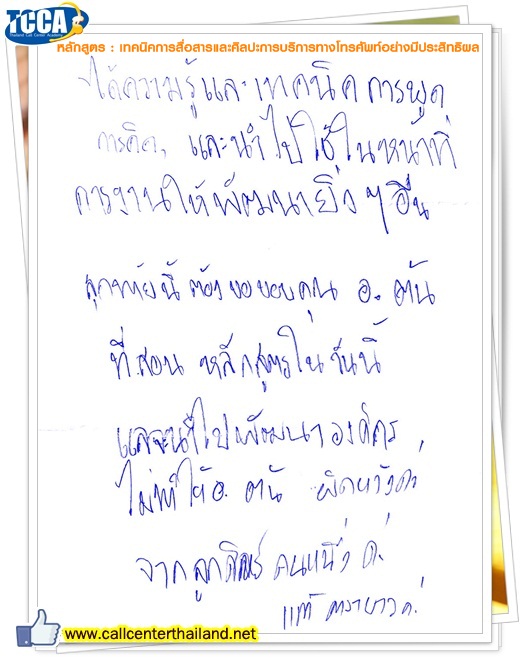 TCCA
Thailand Call Center Academy
หลักสูตร : เทคนิคการสื่อสารและศิลปะการบริการทางโทรศัพท์อย่างมีประสิทธิผล
ได้ความรู้และเทคนิคการพูด
การคิด, และนำไปใช้ในหน้าที่
การงานให้พัฒนายิ่งๆขึ้น
สุดท้ายนี้ ต้องขอขอบคุณ อ. ตัน
ที่สอน หลักสูตรในวันนี้
และจะนำไปพัฒนาองค์กร
ไม่ทำให้ อ. ตัน ผิดหวังค่ะ
จากลูกศิษย์ คนหนึ่ง ค่ะ
ค่ะ
www.callcenterthailand.net